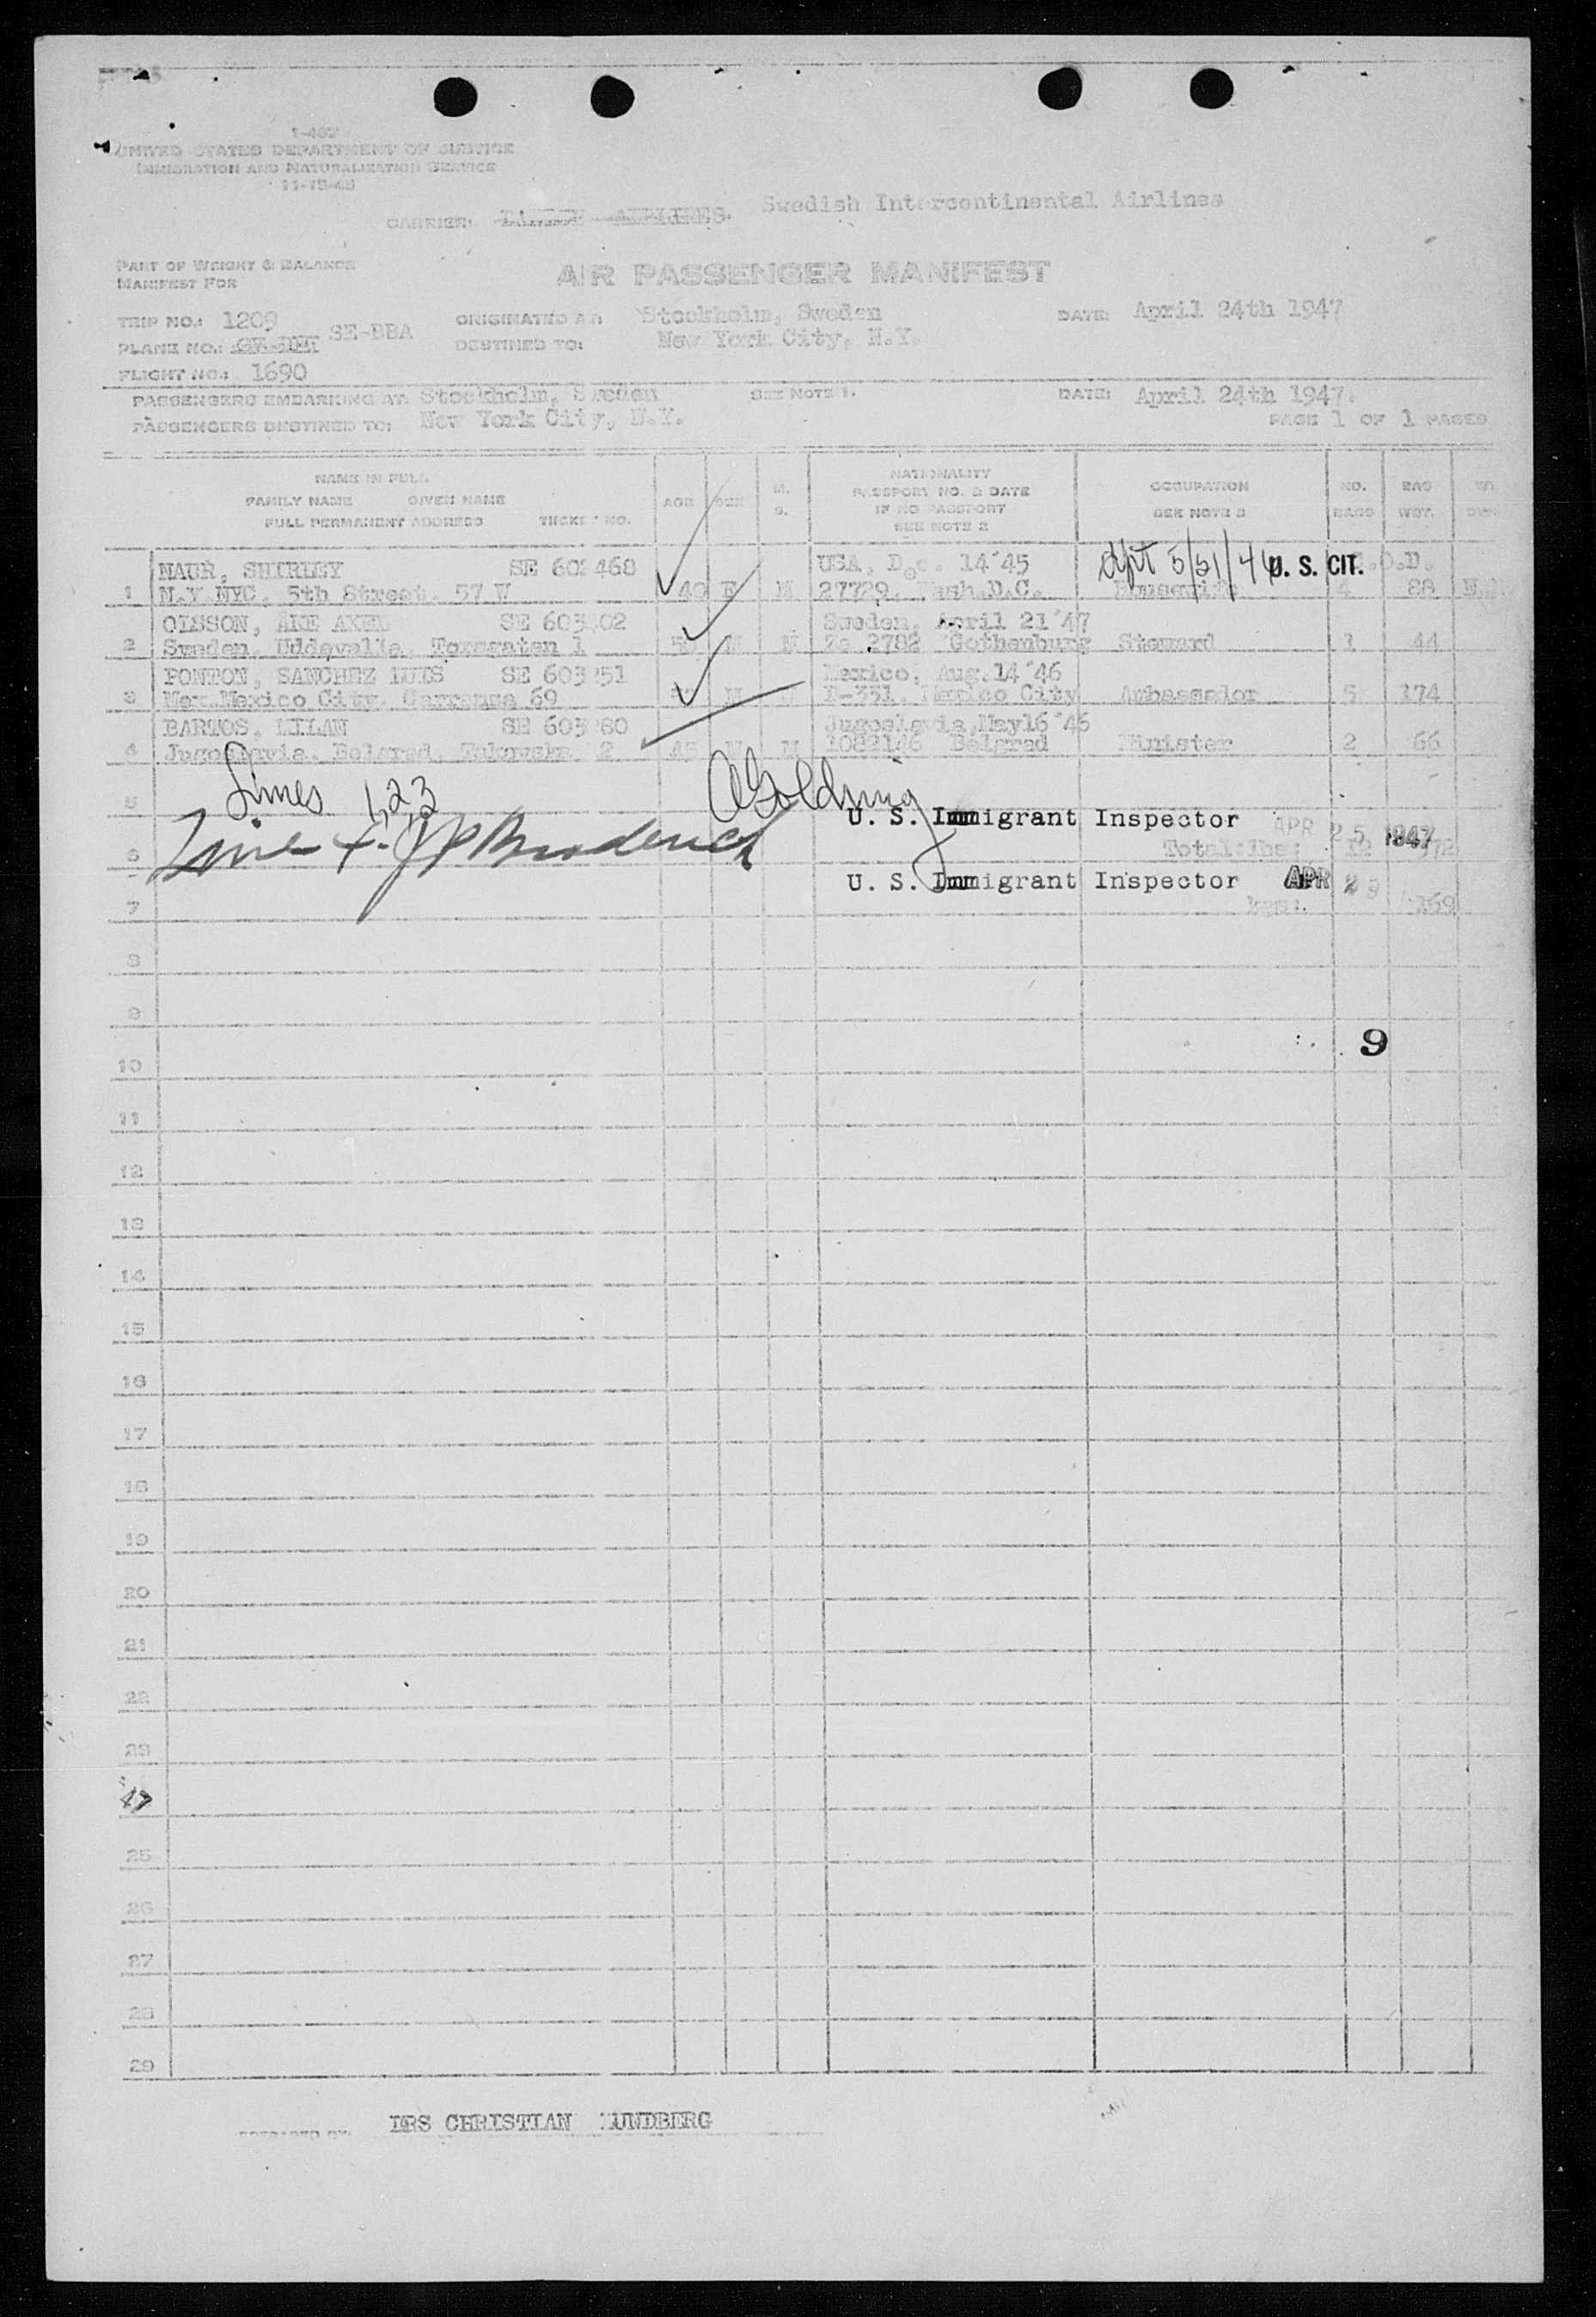 I-467
UNITED STATES DEPARTMENT OF JUSTICE
IMMIGRATION AND NATURALIZATION SERVICE
11-15-45
CARRIER: AIRLINES Swedish Intercontinental Airlines
PART OF WEIGHT & BALANCE
MANIFEST FOR
AIR PASSENGER MANIFEST
TRIP NO.: 1209
ORIGINATED AT: Stockholm, Sweden
DATE: April 24th 1947
PLANE NO.: SE-BBA
DESTINED TO: New York City, N.Y.
FLIGHT NO.: 1690
PASSENGERS EMBARKING AT: Stockholm, Sweden SEE NOTE 1. DATE: April 24th 1947.
PASSENGERS DESTINED TO: New York City, N.Y. PAGE 1 OF 1 PAGES
NAME IN FULL
FAMILY NAME GIVEN NAME
FULL PERMANENT ADDRESS TICKET NO.
AGE
SEX
M.
S.
NATIONALITY
PASSPORT NO. & DATE
IF NO PASSPORT
SEE NOTE 2
OCCUPATION
SEE NOTE 3
NO.
BAGS
BAG
WGT.
NAUR, SHIRLEY SE 602468 USA, Dec. 14´45 5/31/46 U. S. CIT.
1 N.Y. NYC, 5th Street, 57 W 40 F M 27729, Wash.D.C. Housewife 4 88
OLSSON, AKE AXEL SE 603 02 Sweden, April 21´47
2 Sweden, Uddevalla, Torsgaten 1 M M 2782 Gothenburg Steward 1 44
PONTON, SANCHEZ LUIS SE 603 51 Mexico, Aug.14´46
3 Mex.Mexico City, Carranza 69 M D-331, Mexico City Ambassador 5 174
BARTOS, MILAN SE 603 80 Jugoslavia,May16´46
4 Jugoslavia, Belgrad, Takovska 2 45 M M 1082146 Belgrad Minister 2 66
5 Lines 1,2,3 Golding
U. S. Immigrant Inspector APR 25 1947
6 Line 4. JP Broderick Total:lbs: 12 372
U. S. Immigrant Inspector APR
7 kgs:. 169
8
9
9
10
11
12
13
14
15
16
17
18
19
20
21
22
23
47
25
26
27
28
29
PREPARED BY: LARS CHRISTIAN LUNDBERG